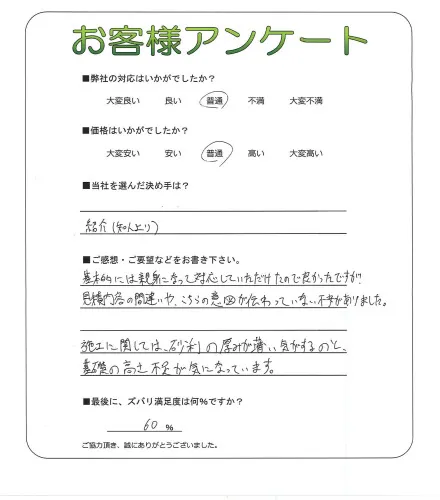 お客様アンケート
■弊社の対応はいかがでしたか?
大変良い 良い 普通 不満 大変不満
■価格はいかがでしたか?
大変安い 安い 普通 高い 大変高い
■当社を選んだ決め手は?
紹介(知人より)
■ご感想・ご要望などをお書き下さい。
基本的には親身になって対応していただけたので良かったですが、
見積内容の間違いや、こちらの意図が伝わっていない不安がありました。
施工に関しては、砂利の厚みが薄い気がするのと、
基礎の高さ不足が気になっています。
■最後に、ズバリ満足度は何%ですか?
60 %
ご協力頂き、誠にありがとうございました。